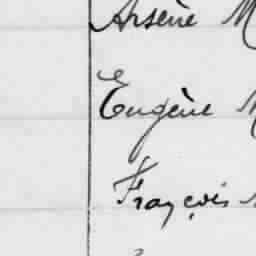 Arsène M
Eugène M
Françcois